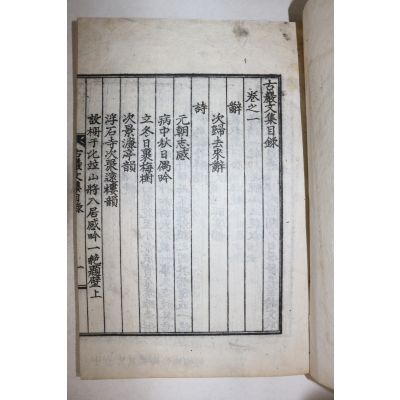 古巖文集目錄
卷之一
辭
次歸去來辭
詩
元朝志感
病中秋日偶吟
立冬日聚梅樹
次景濂亭韻
浮石寺次聚遠樓韻
設柵于北並山將入居感吟一絶題壁上
古巖文集目錄 一